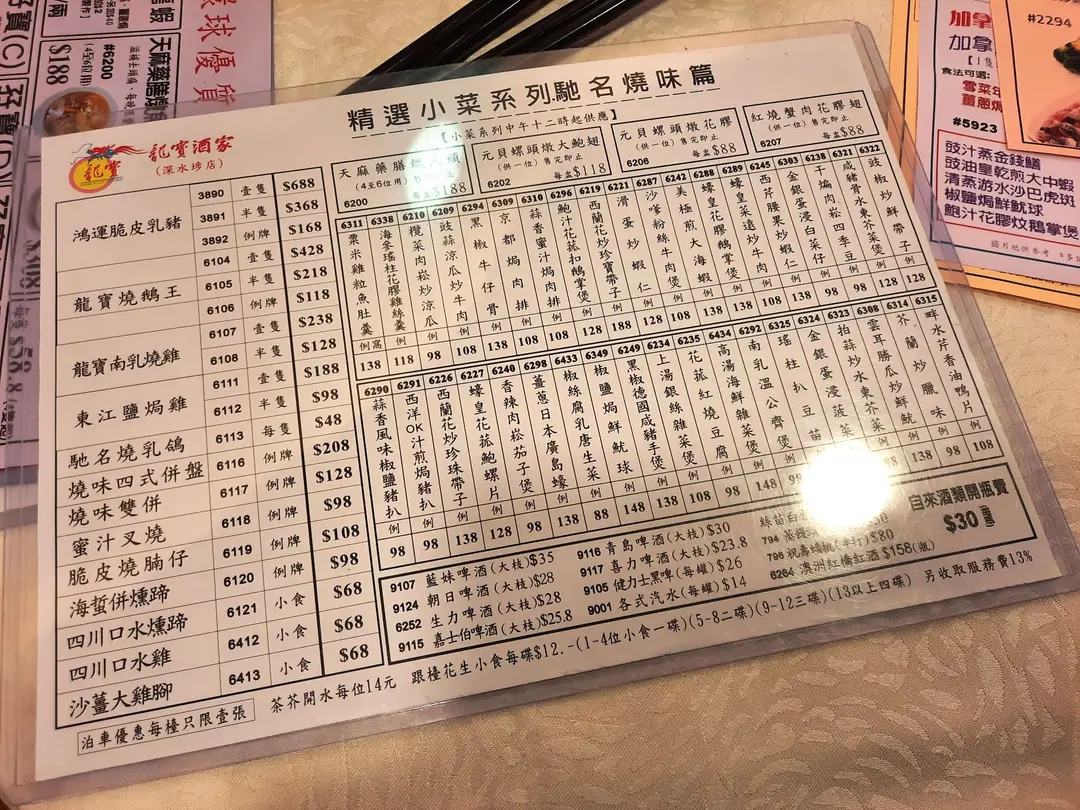 精選小菜系列馳名燒味篇
【小菜系列中午十二時起供應】
龍寶酒家
(深水埗店)
龍寶
天麻藥膳燉
(4至6位用)
6200
$188
元貝螺頭燉大鮑翅
(供一位) 售完即止
6202 每盅$118
元貝螺頭燉花膠
(供一位) 售完即止
6206 每盅$88
紅燒蟹肉花膠翅
(供一位) 售完即止
6207 每盅$88
鴻運脆皮乳豬 3890 壹隻 $688
3891 半隻 $368
3892 例牌 $168
龍寶燒鵝王 6104 壹隻 $428
6105 半隻 $218
6106 例牌 $118
龍寶南乳燒雞 6107 壹隻 $238
6108 半隻 $128
東江鹽焗雞 6111 壹隻 $188
6112 半隻 $98
馳名燒乳鴿 6113 每隻 $48
燒味四式併盤 6116 例牌 $208
燒味雙併 6117 例牌 $128
蜜汁叉燒 6118 例牌 $98
脆皮燒腩仔 6119 例牌 $108
海蜇併燻蹄 6120 例牌 $98
四川口水燻蹄 6121 小食 $68
四川口水雞 6412 小食 $68
沙薑大雞腳 6413 小食 $68
6311 粟米雞粒魚肚羹 例窩 138
6338 海參瑤柱花膠雞絲羹 例 118
6210 欖菜肉崧炒涼瓜 例 98
6209 豉蒜涼瓜炒牛肉 例 108
6294 黑椒牛仔骨 例 138
6309 京都焗肉排 例
6310 蒜香蜜汁焗肉排 例
6296 鮑汁花菰扣鵝掌煲 例
6219 西蘭花炒珍寶帶子 例
6221 滑蛋炒蝦仁 例
6287 沙嗲粉絲牛肉煲 例
6242 美極煎大海蝦 例
6288 蠔皇花膠鵝掌煲 例
6289 蠔皇菜遠炒牛肉 例
6245 西芹腰果炒蝦仁 例
6303 金銀蛋浸白菜仔 例
6238 干煸肉崧四季豆 例
6321 咸豬骨水東芥菜煲 例 128
6322 豉椒炒鮮帶子 例 128
6290 蒜香風味椒鹽豬扒 例 98
6291 西洋OK汁煎焗豬扒 例 98
6226 西蘭花炒珍珠帶子 例 138
6227 蠔皇花菰鮑螺片 例 128
6240 香辣肉崧茄子煲 例 98
6298 薑蔥日本廣島蠔 例 138
6433 椒絲腐乳唐生菜 例 88
6349 椒鹽焗鮮魷球 例 148
6249 黑椒德國咸豬手煲 例 138
6234 上湯銀絲雜菜煲 例 108
6235 花菰紅燒豆腐 例 98
6434 高湯海鮮雜菜煲 例 148
6292 南乳溫公齊煲 例
6325 瑤柱扒豆苗
6324 金銀蛋浸菠菜
6323 拍蒜炒水東芥菜
6308 雲耳勝瓜炒鮮魷 例
6314 芥蘭炒臘味 例 98
6315 畔水芹香油鴨片 例 108
9107 藍妹啤酒(大枝)$35
9124 朝日啤酒(大枝)$28
6252 生力啤酒(大枝)$28
9115 嘉士伯啤酒(大枝)$25.8
9116 青島啤酒(大枝)$30
9117 喜力啤酒(大枝)$23.8
9105 健力士黑啤(每罐)$26
9001 各式汽水(每罐)$14
絲苗白
794 蒸
796 祝壽蟠桃(半打)$80
6264 澳洲紅橋紅酒 $158(瓶)
自來酒類開瓶費
$30
泊車優惠每檯只限壹張
茶芥開水每位14元 跟檯花生小食每碟$12.-(1-4位小食一碟)(5-8二碟)(9-12三碟)(13以上四碟) 另收取服務費13%
環球優質
#6200
(4至6位用)
$188
#2294
加拿
加拿
食法可選:
薑蔥焗
#5923
豉汁蒸金錢鱔
豉油皇乾煎大中蝦
清蒸游水沙巴虎斑
椒鹽焗鮮魷球
鮑汁花膠炆鵝掌煲
圖片祇供參考